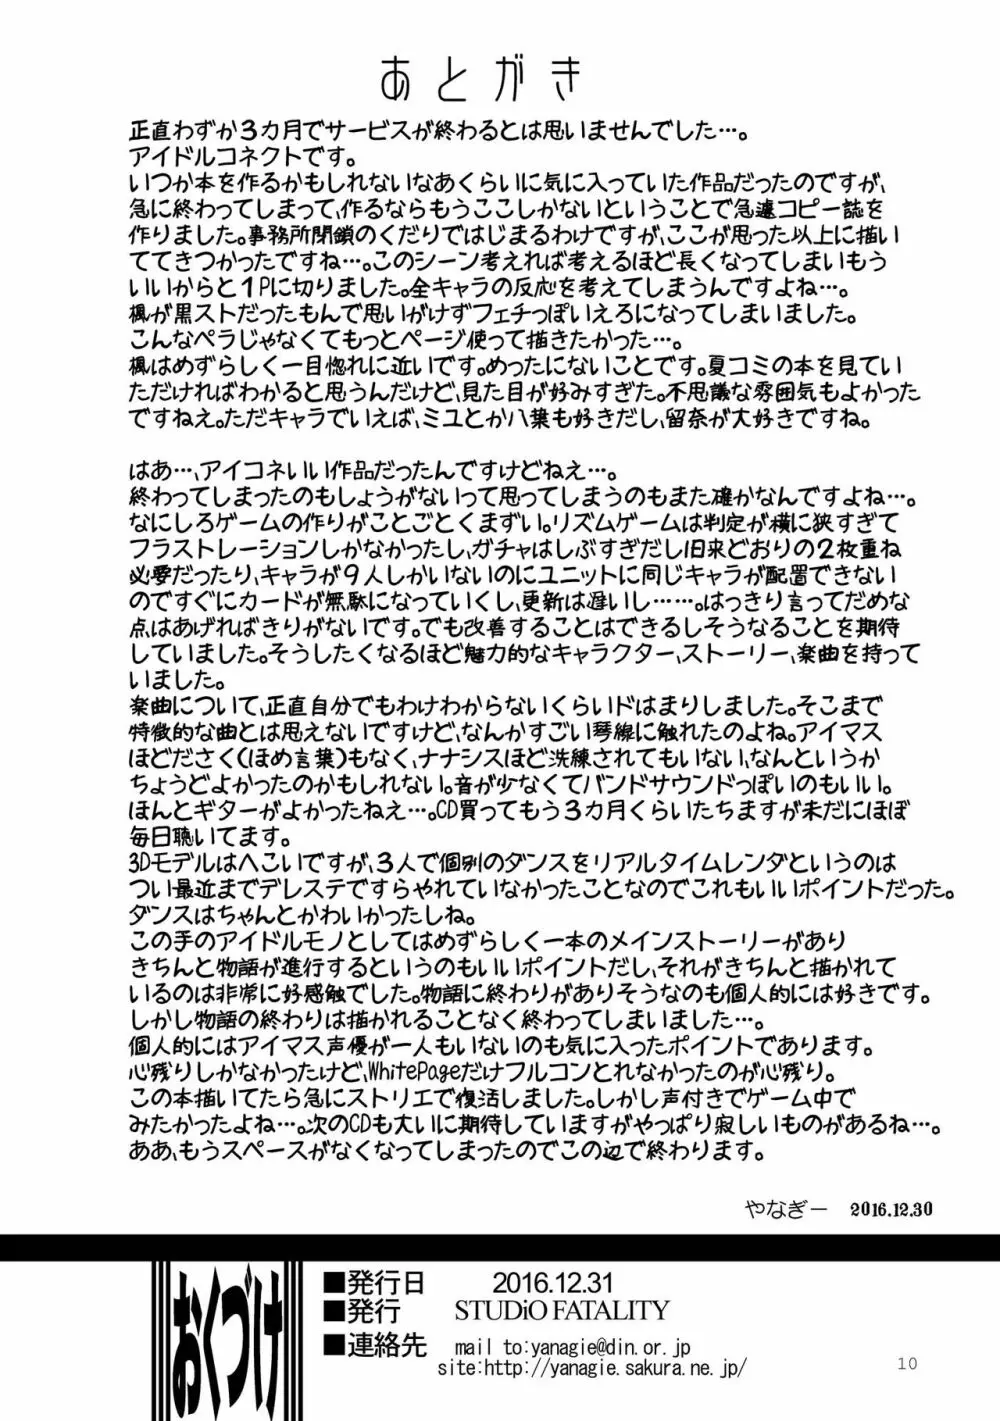 あとがき
正直わずか3カ月でサービスが終わるとは思いませんでした…。
アイドルコネクトです。
いつか本を作るかもしれないなあくらいに気に入っていた作品だったのですが、
急に終わってしまって、作るならもうここしかないということで急遽コピー誌を
作りました。事務所閉鎖のくだりではじまるわけですが、ここが思った以上に描い
ててきつかったですね…。このシーン考えれば考えるほど長くなってしまいもう
いいからと1Pに切りました。全キャラの反応を考えてしまうんですよね…。
楓が黒ストだったもんで思いがけずフェチっぽいえろになってしまいました。
こんなペラじゃなくてもっとページ使って描きたかった…。
楓はめずらしく一目惚れに近いです。めったにないことです。夏コミの本を見てい
ただければわかると思うんだけど、見た目が好みすぎた。不思議な雰囲気もよかった
ですねえ。ただキャラでいえば、ミユとか八葉も好きだし、留奈が大好きですね。
はあ…、アイコネいい作品だったんですけどねえ…。
終わってしまったのもしょうがないって思ってしまうのもまた確かなんですよね…。
なにしろゲームの作りがことごとくまずい。リズムゲームは判定が横に狭すぎて
フラストレーションしかなかったし、ガチャはしぶすぎだし旧来どおりの2枚重ね
必要だったり、キャラが9人しかいないのにユニットに同じキャラが配置できない
のですぐにカードが無駄になっていくし、更新は遅いし……。はっきり言ってだめな
点はあげればきりがないです。でも改善することはできるしそうなることを期待
していました。そうしたくなるほど魅力的なキャラクター、ストーリー、楽曲を持って
いました。
楽曲について、正直自分でもわけわからないくらいドはまりしました。そこまで
特徴的な曲とは思えないですけど、なんかすごい琴線に触れたのよね。アイマス
ほどださく(ほめ言葉)もなく、ナナシスほど洗練されてもいない、なんというか
ちょうどよかったのかもしれない。音が少なくてバンドサウンドっぽいのもいい。
ほんとギターがよかったねえ…。CD買ってもう3カ月くらいたちますが未だにほぼ
毎日聴いてます。
3Dモデルはへこいですが、3人で個別のダンスをリアルタイムレンダというのは
つい最近までデレステですらやれていなかったことなのでこれもいいポイントだった。
ダンスはちゃんとかわいかったしね。
この手のアイドルモノとしてはめずらしく一本のメインストーリーがあり
きちんと物語が進行するというのもいいポイントだし、それがきちんと描かれて
いるのは非常に好感触でした。物語に終わりがありそうなのも個人的には好きです。
しかし物語の終わりは描かれることなく終わってしまいました…。
個人的にはアイマス声優が一人もいないのも気に入ったポイントであります。
心残りしかなかったけど、WhitePageだけフルコンとれなかったのが心残り。
この本描いてたら急にストリエで復活しました。しかし声付きでゲーム中で
みたかったよね…。次のCDも大いに期待していますがやっぱり寂しいものがあるね…。
ああ、もうスペースがなくなってしまったのでこの辺で終わります。
やなぎー 2016.12.30
おくづけ
■発行日 2016.12.31
■発行 STUDiO FATALITY
■連絡先 mail to:yanagie@din.or.jp
site:http://yanagie.sakura.ne.jp/
10